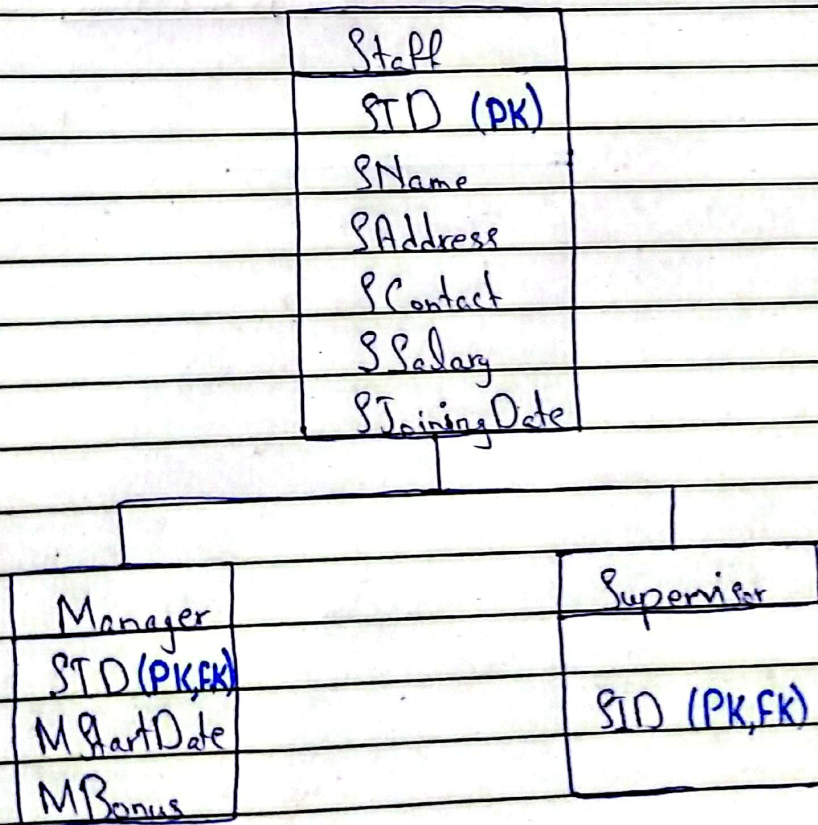 Staff
SID (PK)
SName
SAddress
SContact
SSalary
SJoiningDate
Manager
SID (PK,FK)
MStartDate
MBonus
Supervisor
SID (PK,FK)